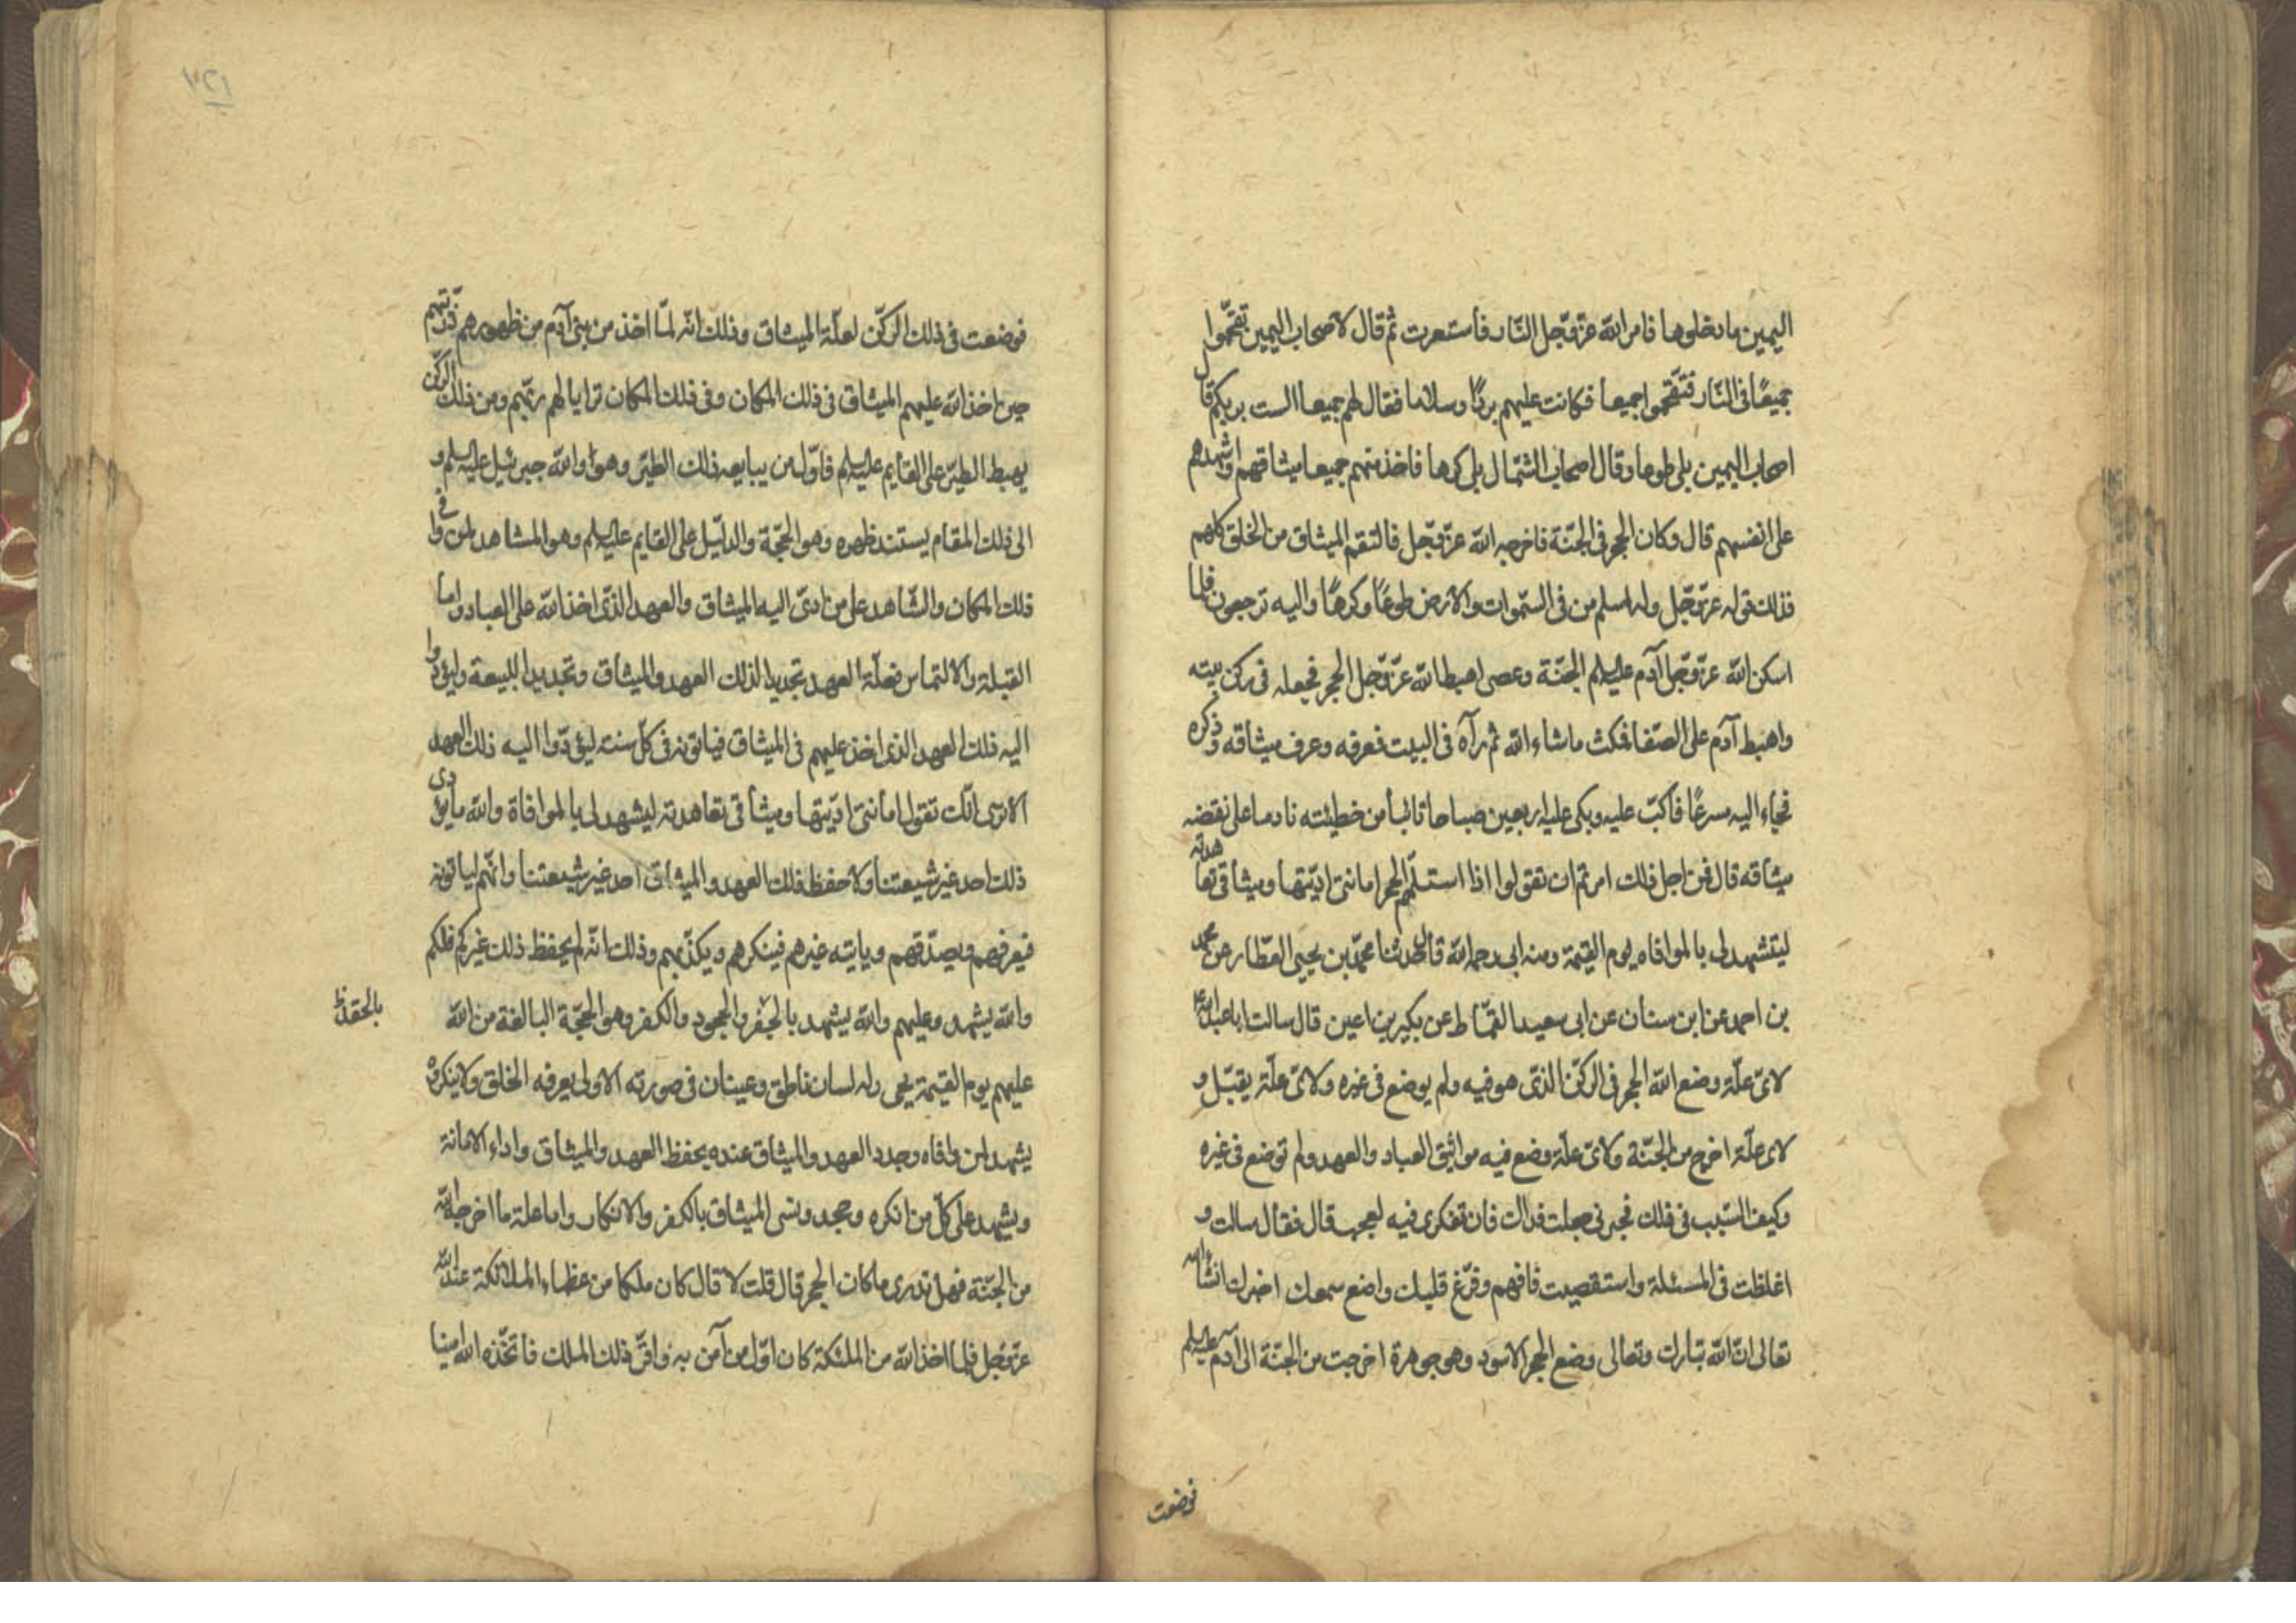 اليمين مادخلوها فامر الله عزوجل النار فاستعرت ثم قال لاصحاب اليمين تقحّموا
جميعًا فى النار فتقحموا جميعا فكانت عليهم بردًا وسلاما فقال لهم جميعا الست بربكم قال
اصحاب اليمين بلى طوعا وقال اصحاب الشمال بلى كرها فاخذ منهم جميعا ميثاقهم واشهدهم
على انفسهم قال وكان الحجر فى الجنّة فاخرجه الله عزوجل فالتقم الميثاق من الخلق كلهم
فذلك قوله عزوجل وله اسلم من فى السّموات والارض طوعًا وكرهًا واليه ترجعون فلما
اسكن الله عزوجل آدم عليه السلم الجنّة وعصى اهبط الله عزوجل الحجر فجعله فى ركن بيته
واهبط آدم على الصفا فمكث ماشاء الله ثم رآه فى البيت فعرفه وعرف ميثاقه وذكره
فجاء اليه مسرعًا فاكبّ عليه وبكى عليه اربعين صباحا تائبا من خطيئته نادما على نقضه
ميثاقه قال فمن اجل ذلك امرتم ان تقولوا اذا استلمتم الحجر امانتى ادّيتها وميثاقى تعاهدته
لتشهد لى بالموافاه يوم القيمة ومنه ابى رحمه الله قال حدثنا محمّد بن يحيى العطّار عن محمد
بن احمد عن ابن سنان عن ابى سعيد القمّاط عن بكير بن اعين قال سالت اباعبدالله
لاىّ علّة وضع الله الحجر فى الركن الذى هو فيه ولم يوضع فى غيره ولاىّ علّة يقبّل و
لاى علّة اخرج من الجنّة ولاىّ علّة وضع فيه مواثيق العباد والعهد ولم توضع فى غيره
وكيف السّبب فى ذلك تخبرنى جعلت فداك فان تفكرى فيه لعجب قال فقال سالت و
اغلظت فى المسئلة واستقصيت فافهم وفرّغ قلبك واصغ سمعك اخبرك انشاءالله
تعالى انّ الله تبارك وتعالى وضع الحجر الاسود وهو جوهرة اخرجت من الجنّة الى آدم عليه السلم
فوضعت
٢٤١
فوضعت فى ذلك الركن لعلّة الميثاق وذلك انّه لمّا اخذ من بنى آدم من ظهورهم ذرّيّتهم
حين اخذ الله عليهم الميثاق فى ذلك المكان وفى ذلك المكان ترايا لهم ربّهم ومن ذلك الركن
يهبط الطير على القايم عليه السلم فاوّل من يبايعه ذلك الطير وهو والله جبرئيل عليه السلم و
الى ذلك المقام يستند ظهره وهو الحجّة والدليل على القايم عليه السلم وهو المشاهد لمن وافى
ذلك المكان والشّاهد على من ادىّ اليه الميثاق والعهد الذى اخذ الله على العباد واما
القبلة والالتماس فعلّة العهد تجديدا لذلك العهد والميثاق وتجديدا للبيعة وليؤدّوا
اليه ذلك العهد الذى اخذ عليهم فى الميثاق فياتونه فى كلّ سنته ليؤدّوا اليه ذلك العهد
الا ترى انّك تقول امانتى ادّيتها وميثاقى تعاهدته ليشهد لى بالموافاة والله مايؤدى
ذلك احد غير شيعتنا ولا حفظ ذلك العهد والميثاق احد غير شيعتنا وانّهم لياتونه
فيعرفهم ويصدّقهم وياتيه غيرهم فينكرهم ويكذّبهم وذلك انّه لم يحفظ ذلك غيركم فلكم
والله يشهد وعليهم والله يشهد بالخفر والجحود والكفر وهو الحجّة البالغة من الله
عليهم يوم القيمة يجى وله لسان ناطق وعينان فى صورته الاولى يعرفه الخلق ولاينكره
يشهد لمن وافاه وجدد العهد والميثاق عنده بحفظ العهد والميثاق واداء الامانة
ويشهد على كلّ من انكره وجحد ونسى الميثاق بالكفر والانكار واما علة ما اخرجه الله
من الجنّة فهل تدرى ماكان الحجر قال قلت لا قال كان ملكا من عظماء الملائكة عندالله
عزوجل فلما اخذ الله من الملئكة كان اوّل من آمن به واقرّ ذلك الملك فاتخذه الله امينا